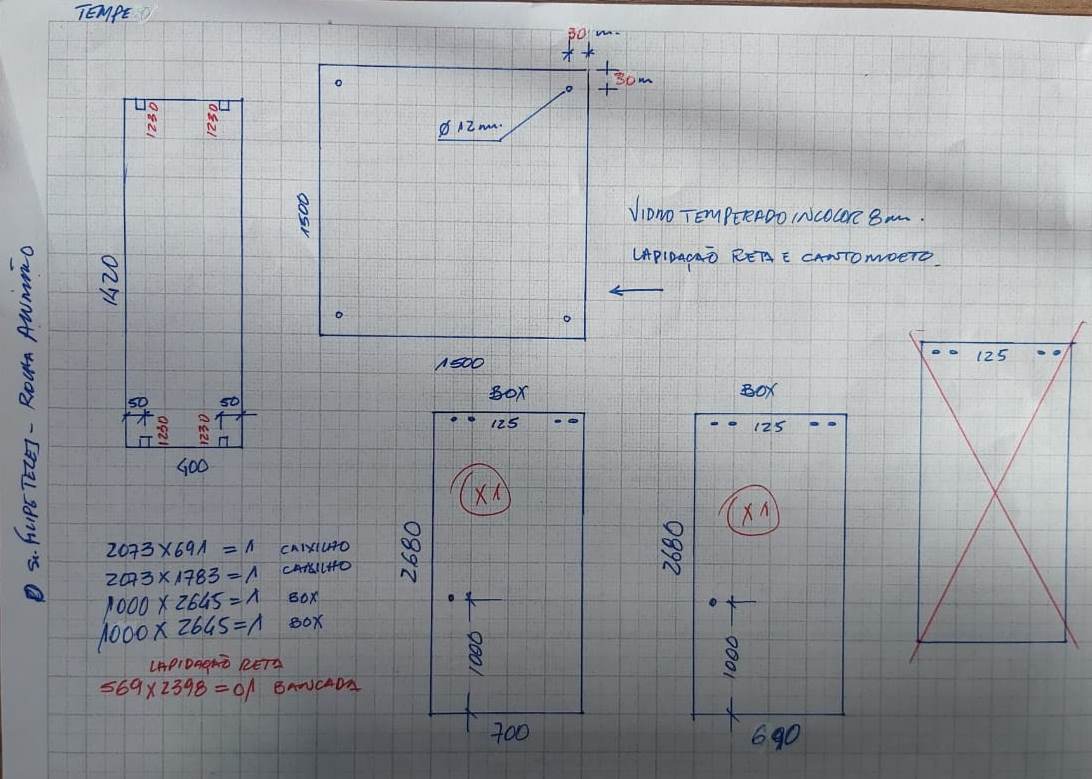 30 m.
30m
Ø 12 mm.
1230
1230
1500
1420
VIDRO TEMPERADO INCOLOR 8 mm.
LAPIDAÇÃO RETA E CANTO MOETO.
1500
50
50
1230
1230
400
BOX
125
X1
2680
1000
700
BOX
125
X1
2680
1000
690
125
2073 X 691 = 1 CAIXILHO
2073 X 1783 = 1 CAIXILHO
1000 X 2645 = 1 BOX
1000 X 2645 = 1 BOX
LAPIDAÇÃO RETA
569 X 2398 = 01 BANCADA